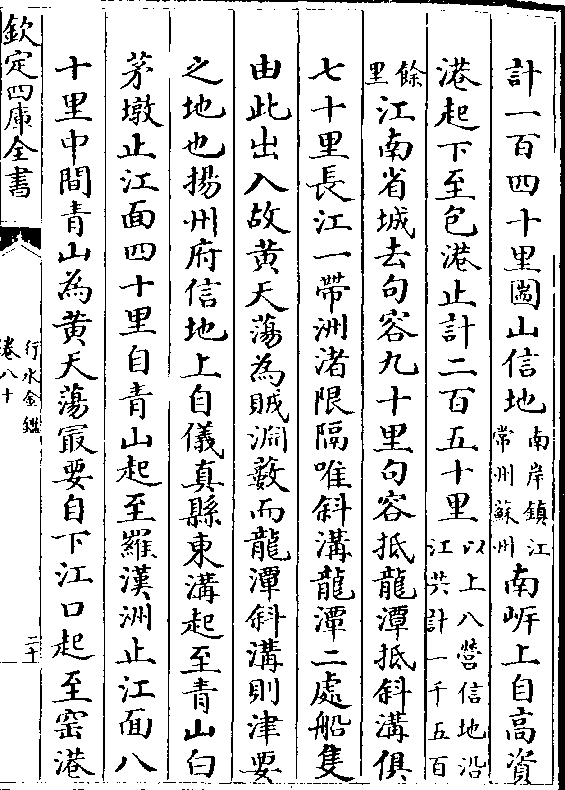 計一百四十里圌山信地南岸鎮江常州蘇州南岸上自高資
港起下至包港止計二百五十里以上八營信地沿江共計一千五百
餘里江南省城去句容九十里句容抵龍潭抵斜溝俱
七十里長江一帶洲渚限隔唯斜溝龍潭二處船隻
由此出入故黄天蕩為賊淵藪而龍潭斜溝則津要
之地也揚州府信地上自儀真縣東溝起至青山白
茅墩止江面四十里自青山起至羅漢洲止江面八
十里中間青山為黄天蕩冣要自下江口起至窑港
欽定四庫全書
行水金鑑
卷八十
二十